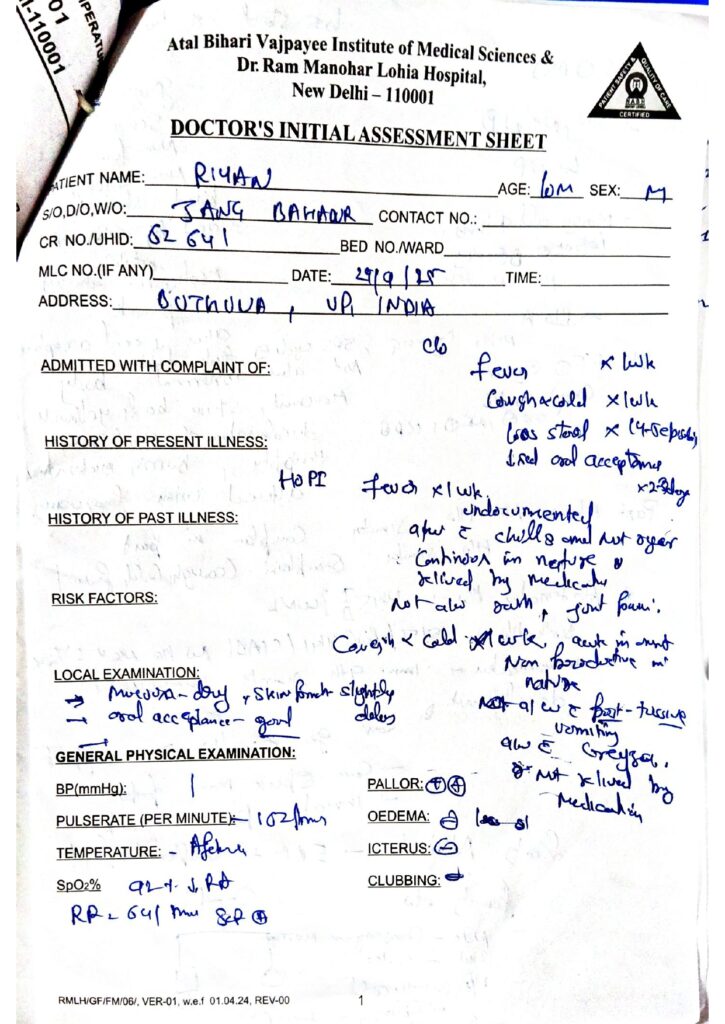 01
I-110001
TEMPERATU
Atal Bihari Vajpayee Institute of Medical Sciences &
Dr. Ram Manohar Lohia Hospital,
New Delhi – 110001
PATIENT SAFETY & QUALITY OF CARE
NABH
CERTIFIED
DOCTOR'S INITIAL ASSESSMENT SHEET
PATIENT NAME: RIYAN AGE: 10M SEX: M
S/O,D/O,W/O: JANG BAHADUR CONTACT NO.:
CR NO./UHID: 62641 BED NO./WARD
MLC NO.(IF ANY) DATE: 29/9/25 TIME:
ADDRESS: , UP, INDIA
c/o
ADMITTED WITH COMPLAINT OF: fever x 1wk
Cough & cold x 1wk
loose stool x
HISTORY OF PRESENT ILLNESS: ↓sed oral acceptance
x 2-3 days
HOPI fever x 1wk
HISTORY OF PAST ILLNESS: undocumented
a/w c chills and not rigor
continous in nature &
relived by medication
RISK FACTORS: Not a/w rash, joint pain.
Cough & cold x 1wk, acute in onset
Non productive in
nature
LOCAL EXAMINATION:
→ Mucosa - dry, skin pinch slightly
delay
→ oral acceptance - good
Not a/w c post-tussive
vomiting
a/w c
& not relived by
Medication
GENERAL PHYSICAL EXAMINATION:
BP(mmHg): PALLOR: ++
PULSERATE (PER MINUTE): - 102/min OEDEMA:
TEMPERATURE: - Afebrile ICTERUS: -
SpO2% 92% ↓ RA CLUBBING: -
RR - 64/min SCR +
RMLH/GF/FM/06/, VER-01, w.e.f 01.04.24, REV-00 1